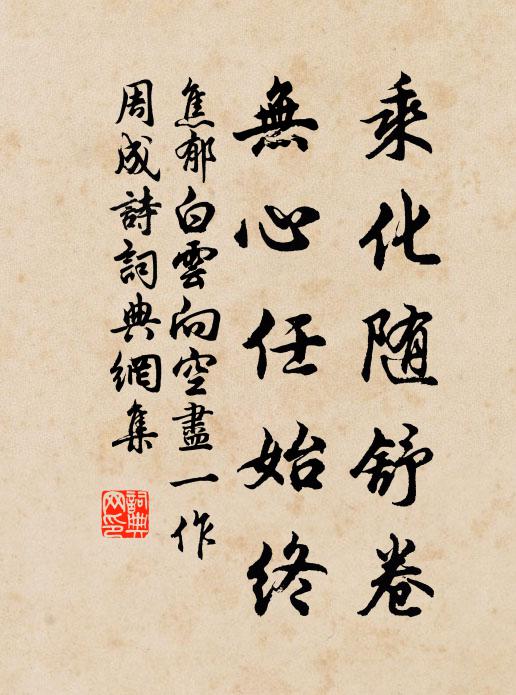 乘化随舒卷
無心任始終
焦郁白雲向空盡一作
周成詩詞典網集
詞典
网印